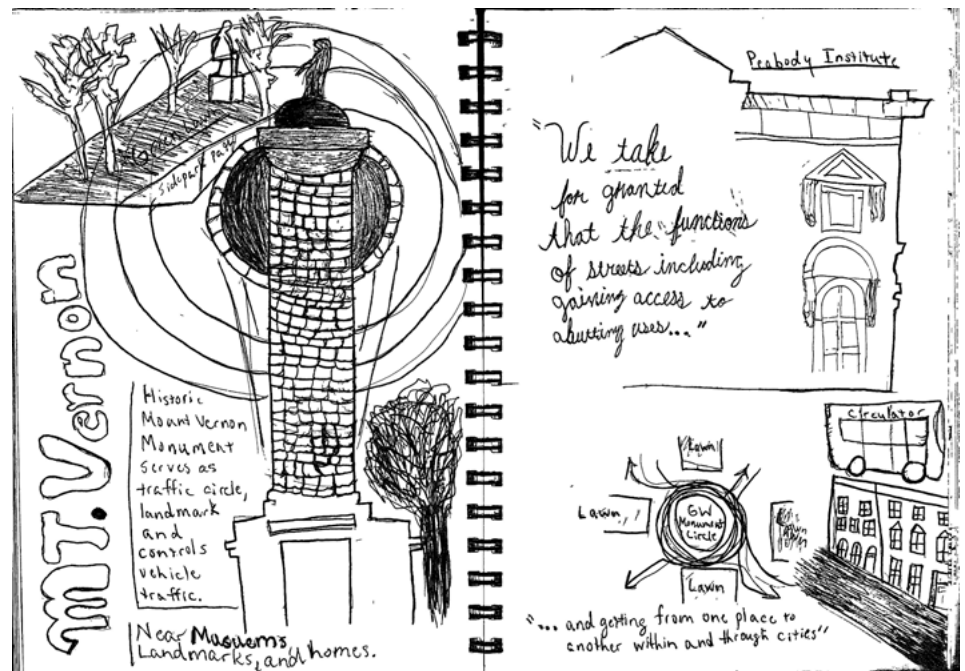 Green
Sidepark path
MT. Vernon
Historic
Mount Vernon
Monument
Serves as
traffic circle,
landmark
and
controls
vehicle
traffic.
Near Masuems
Landmarks, and homes.
Peabody Institute
"We take
for granted
that the functions
of streets including
gaining access to
abutting uses..."
Circulator
Lawn
Lawn
GW
Monument
Circle
Lawn
Lawn
"... and getting from one place to
another within and through cities"